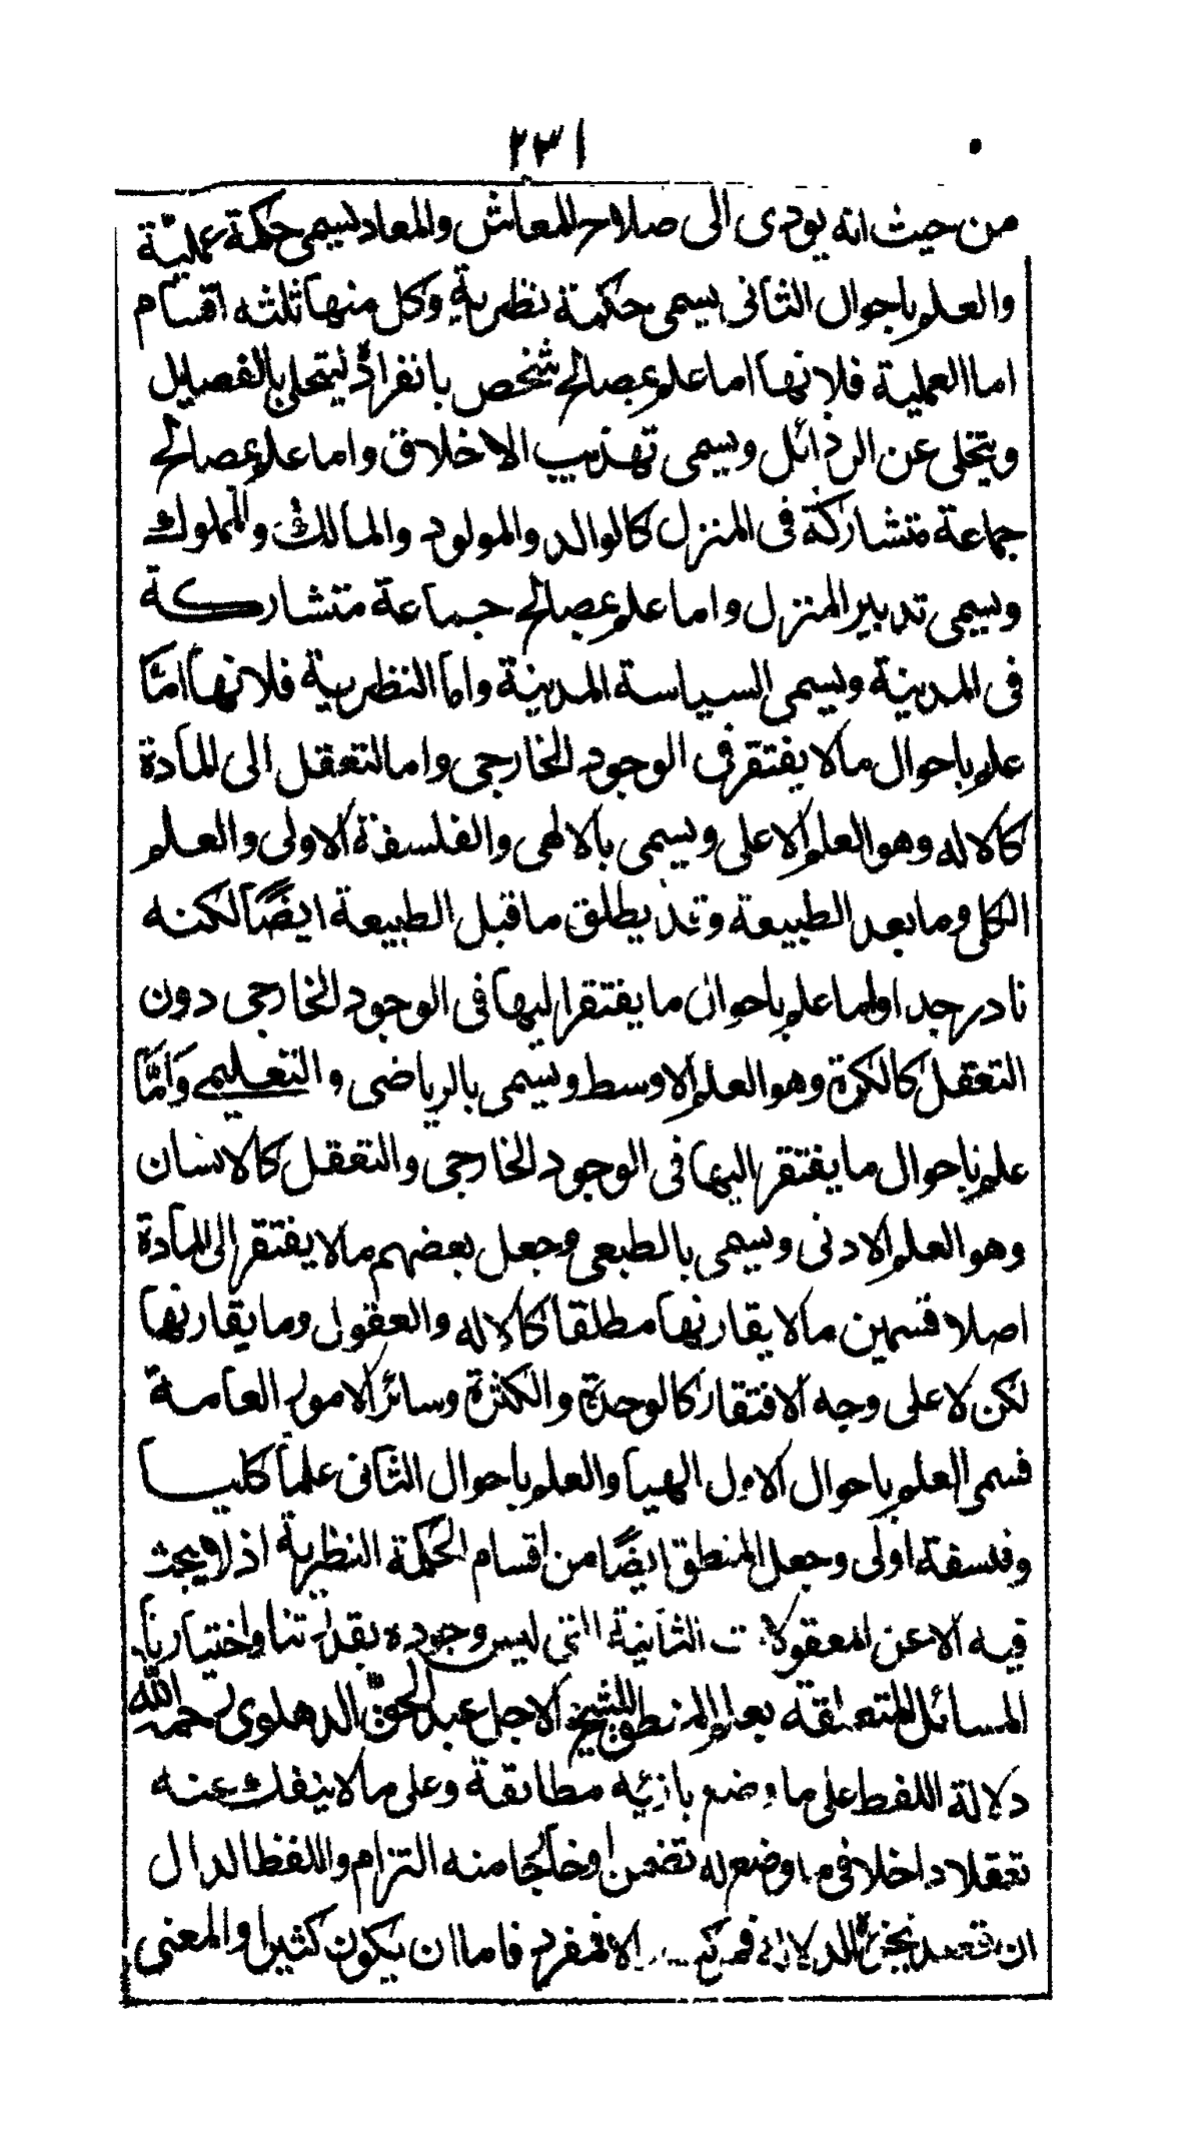 ٢٣١
من حيث انه يودى الى صلاح المعاش والمعاد يسمى حكمة عمليّة
والعلم باحوال الثانى يسمى حكمة نظرية وكل منها ثلثه اقسام
اما العملية فلانها اما علم بمصالح شخص بانفراده ليتحلى بالفضايل
ويتخلى عن الرذائل ويسمى تهذيب الاخلاق واما علم بمصالح
جماعة متشاركة فى المنزل كالوالد والمولود والمالك والمملوك
ويسمى تدبير المنزل واما علم بمصالح جماعة متشاركة
فى المدينة ويسمى السياسة المدينة واما النظرية فلانها امّا
علم باحوال مالا يفتقر فى الوجود الخارجى واما لتعقل الى المادة
كالاله وهو العلم الاعلى ويسمى بالالهى والفلسفة الاولى والعلم
الكلى وما بعد الطبيعة وقد يطلق ما قبل الطبيعة ايضًا لكنه
نادر جدا واما علم باحوال ما يفتقر اليها فى الوجود الخارجى دون
التعقل كالكرة وهو العلم الاوسط ويسمى بالرياضى والتعليمى وَامَّا
علم باحوال ما يفتقر اليها فى الوجود الخارجى والتعقل كالانسان
وهو العلم الادنى ويسمى بالطبعى وجعل بعضهم مالا يفتقر الى المادة
اصلا قسمين مالا يقارنها مطلقا كالاله والعقول وما يقارنها
لكن لا على وجه الافتقار كالوحدة والكثرة وسائر الامور العامة
فسمى العلم باحوال الاول الهيا والعلم باحوال الثانى علما كليا
وفلسفة اولى وجعل المنطق ايضًا من اقسام الحكمة النظرية اذ لا يبحث
فيه الا عن المعقولات الثانية التى ليس وجوده بقدرتنا واختيارنا
المسائل المتعلقه بعلم المنطق للشيخ الاجل عبد الحق الدهلوى رحمه الله
دلالة اللفظ على ما وضع بازئيه مطابقة وعلى مالا ينفك عنه
تعقلا داخلا فى ما وضع له تضمن او خارجا منه التزام واللفظ الدال
ان قصد بجزئه الدلالة فمركب والا فمفرد فاما ان يكون كثيرا والمعنى